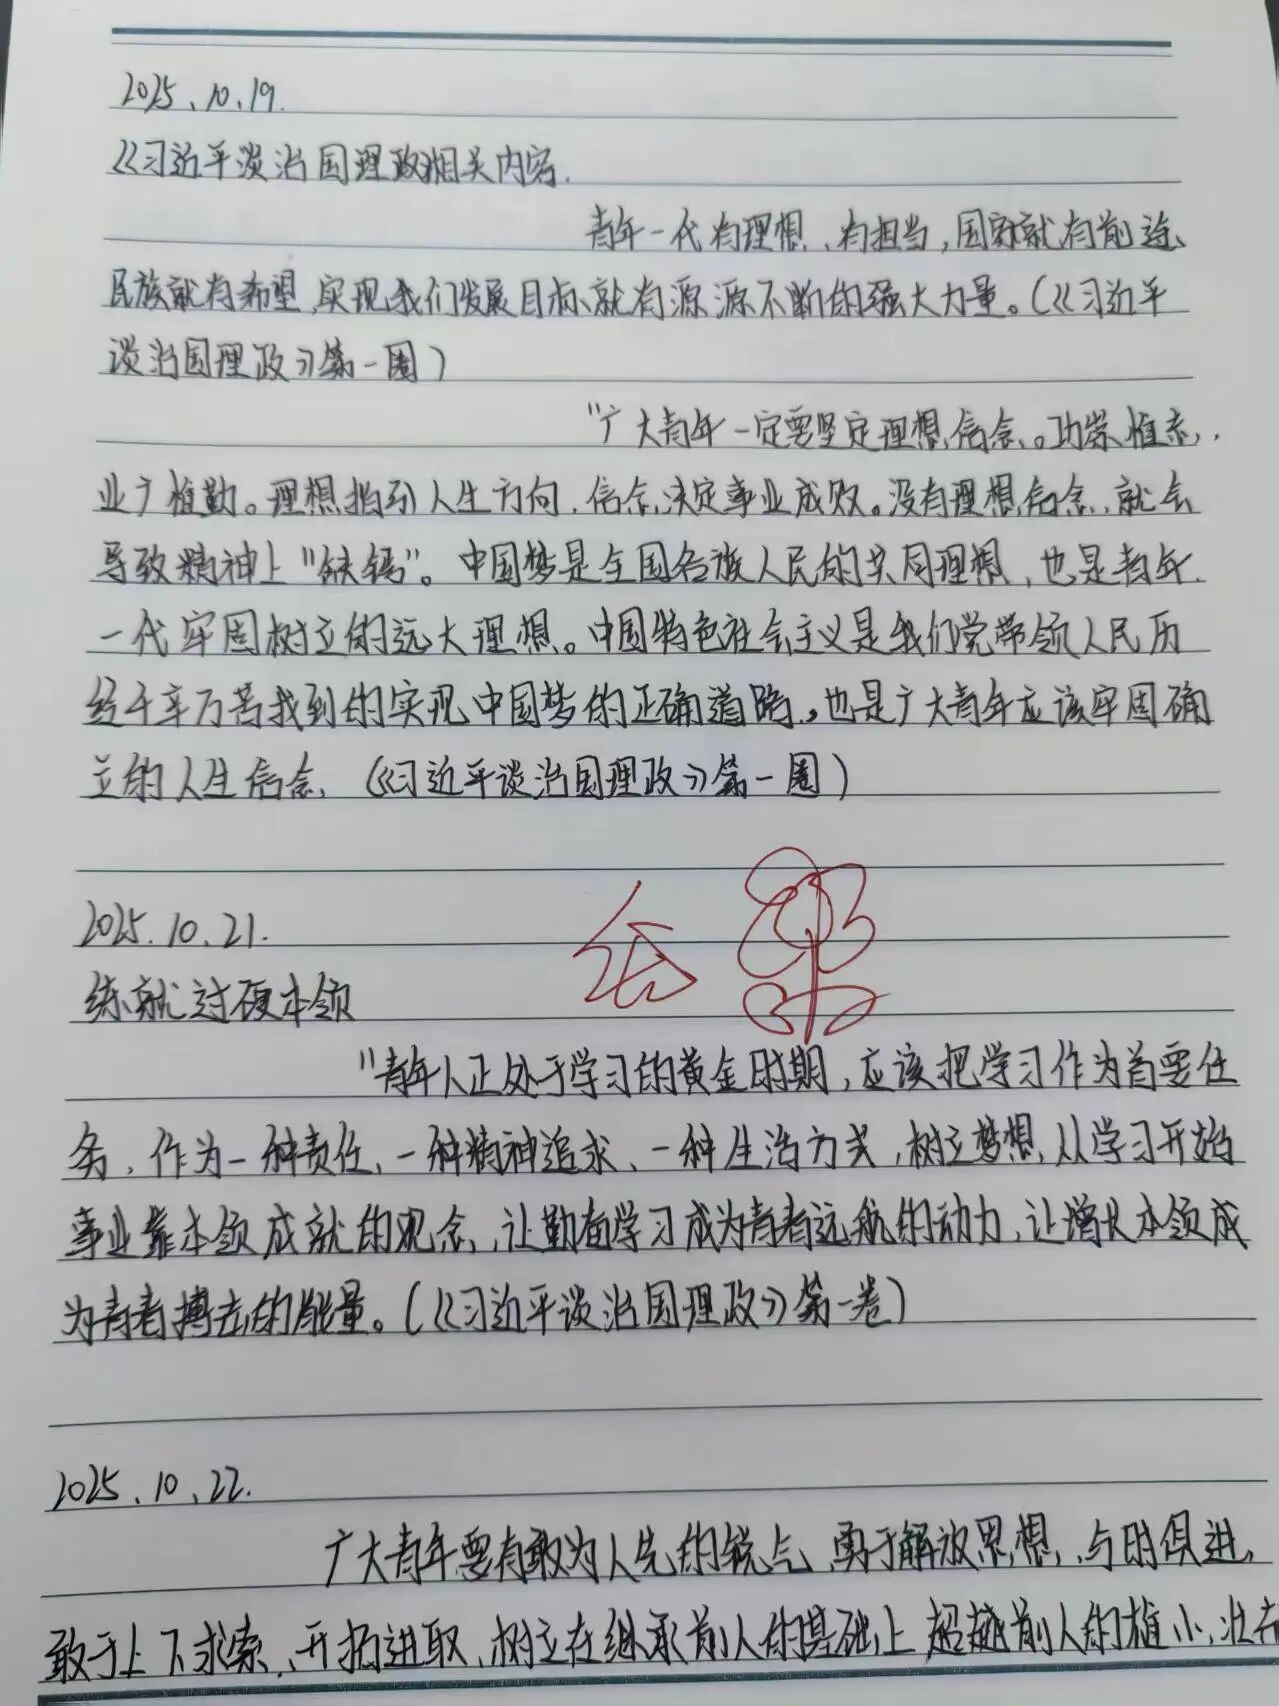 2025.10.19.
《习近平谈治国理政相关内容.
青年一代有理想、有担当，国家就有前途、
民族就有希望，实现我们发展目标就有源源不断的强大力量。(《习近平
谈治国理政》第一圈)
"广大青年一定要坚定理想信念。功崇惟志，
业广惟勤。理想指引人生方向，信念决定事业成败。没有理想信念，就会
导致精神上"缺钙"。中国梦是全国各族人民的共同理想，也是青年
一代牢固树立的远大理想。中国特色社会主义是我们党带领人民历
经千辛万苦找到的实现中国梦的正确道路，也是广大青年应该牢固确
立的人生信念，(《习近平谈治国理政》第一圈)
2025.10.21.
练就过硬本领
"青年人正处于学习的黄金时期，应该把学习作为首要任
务，作为一种责任、一种精神追求、一种生活方式，树立梦想从学习开始
事业靠本领成就的观念，让勤奋学习成为青春远航的动力，让增长本领成
为青春搏击的能量。(《习近平谈治国理政》第一卷)
2025.10.22.
广大青年要有敢为人先的锐气，勇于解放思想，与时俱进，
敢于上下求索、开拓进取，树立在继承前人的基础上超越前人的雄心壮志